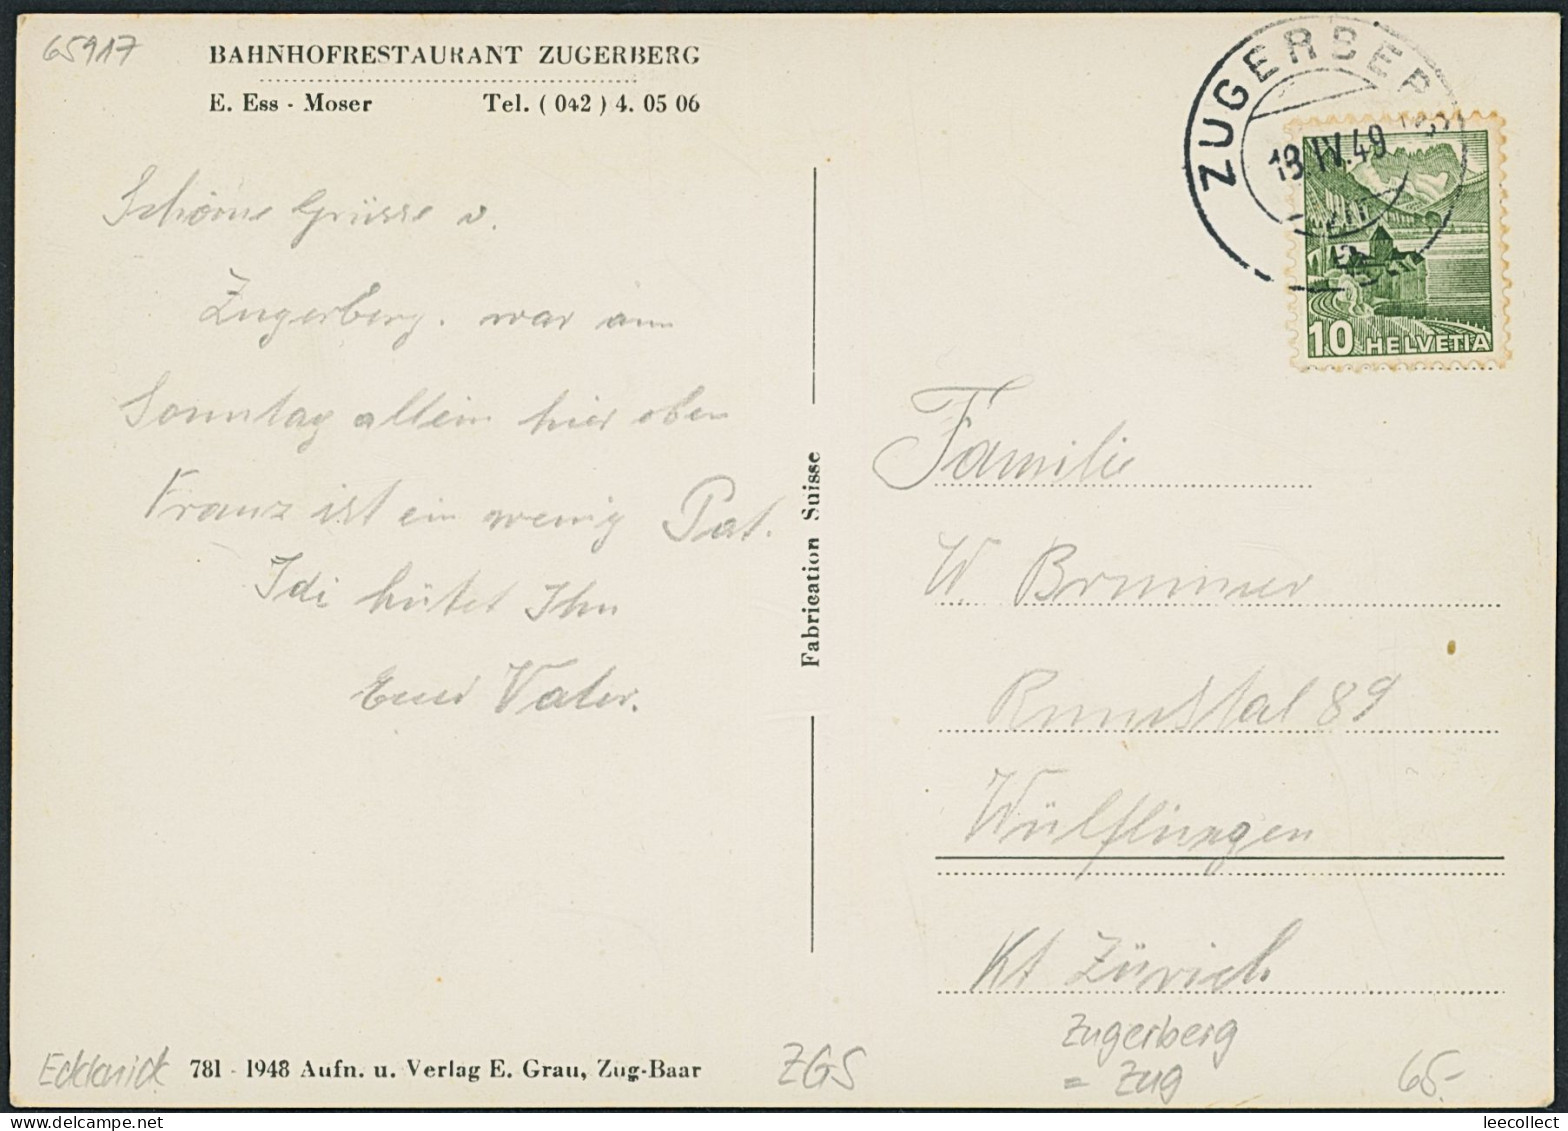 65917
BAHNHOFRESTAURANT ZUGERBERG
E. Ess - Moser Tel. (042) 4. 05 06
Schöne Grüsse v.
Zugerberg. war am
Sonntag allein hier oben
Franz ist ein wenig Pat.
Idi hütet Ihn
Euer Vater.
Fabrication Suisse
ZUGERBERG
18.IV.49
10 HELVETIA
Familie
W. Brunner
89
Wülflingen
Kt Zürich
Zugerberg
= Zug
65.-
ZGS
Eckknick
781 - 1948 Aufn. u. Verlag E. Grau, Zug-Baar
leecollect